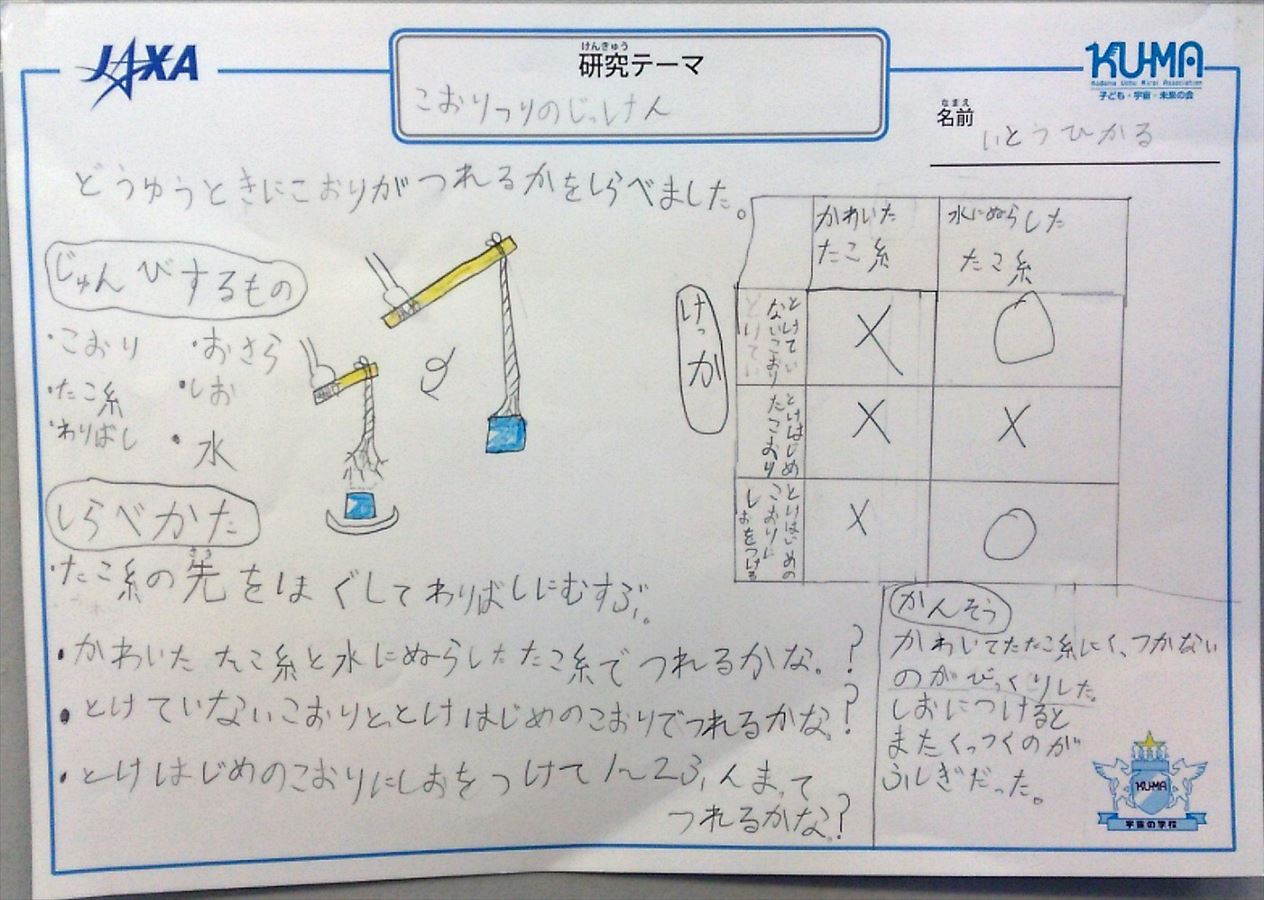 JAXA
けんきゅう
研究テーマ
こおりつりのじっけん
KU-MA
Kodomo Uchu Mirai Association
子ども・宇宙・未来の会
なまえ
名前
いとうひかる
どうゆうときにこおりがつれるかをしらべました。
じゅんびするもの
・こおり ・おさら
・たこ糸 ・しお
・わりばし ・水
しらべかた
さき
・たこ糸の先をほぐしてわりばしにむすぶ。
・かわいたたこ糸と水にぬらしたたこ糸でつれるかな。?
・とけていないこおりと、とけはじめのこおりでつれるかな。?
・とけはじめのこおりにしおをつけて1~2ふんまって
つれるかな。?
けっか
かわいた
たこ糸
水にぬらした
たこ糸
とけてい
ないこおり
× ○
とけはじめ
たこおり
× ×
とけはじめの
こおりに
しおをつける
× ○
かんそう
かわいてたたこ糸にく、つかない
のがびっくりした。
しおにつけると
またくっつくのが
ふしぎだった。
KU-MA
宇宙の学校